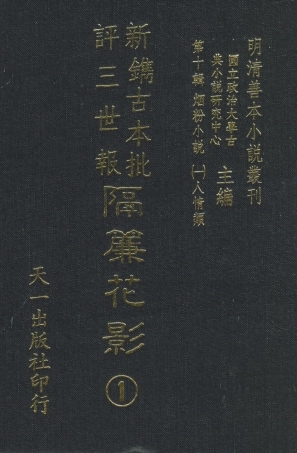 明清善本小說叢刊
國立政治大學古
典小說研究中心
主編
第十輯 烟粉小說 ㈠人情類
新鐫古本批
評三世報
隔簾花影 ①
天一出版社印行